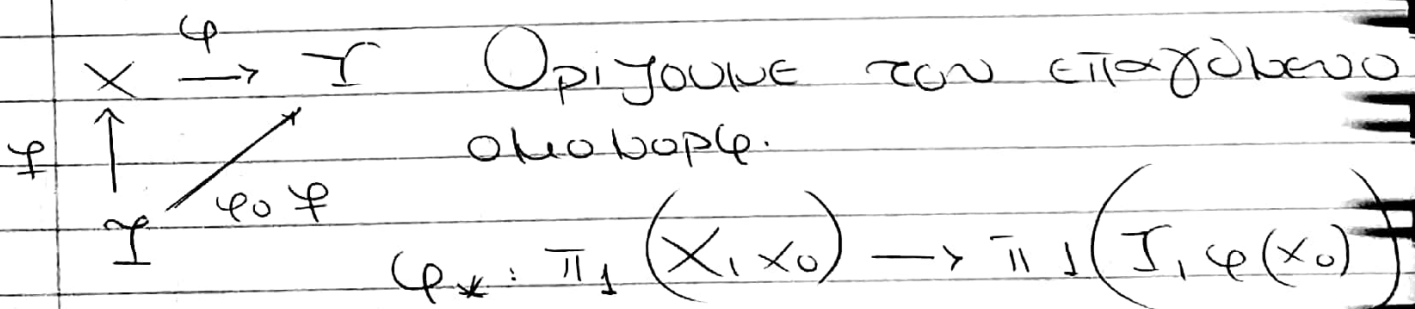 X —φ→ Y Ορίζουμε τον επαγόμενο
f ↑ ομομορφ.
I φ∘f
φ_*: π_1(X, x_0) → π_1(Y, φ(x_0))